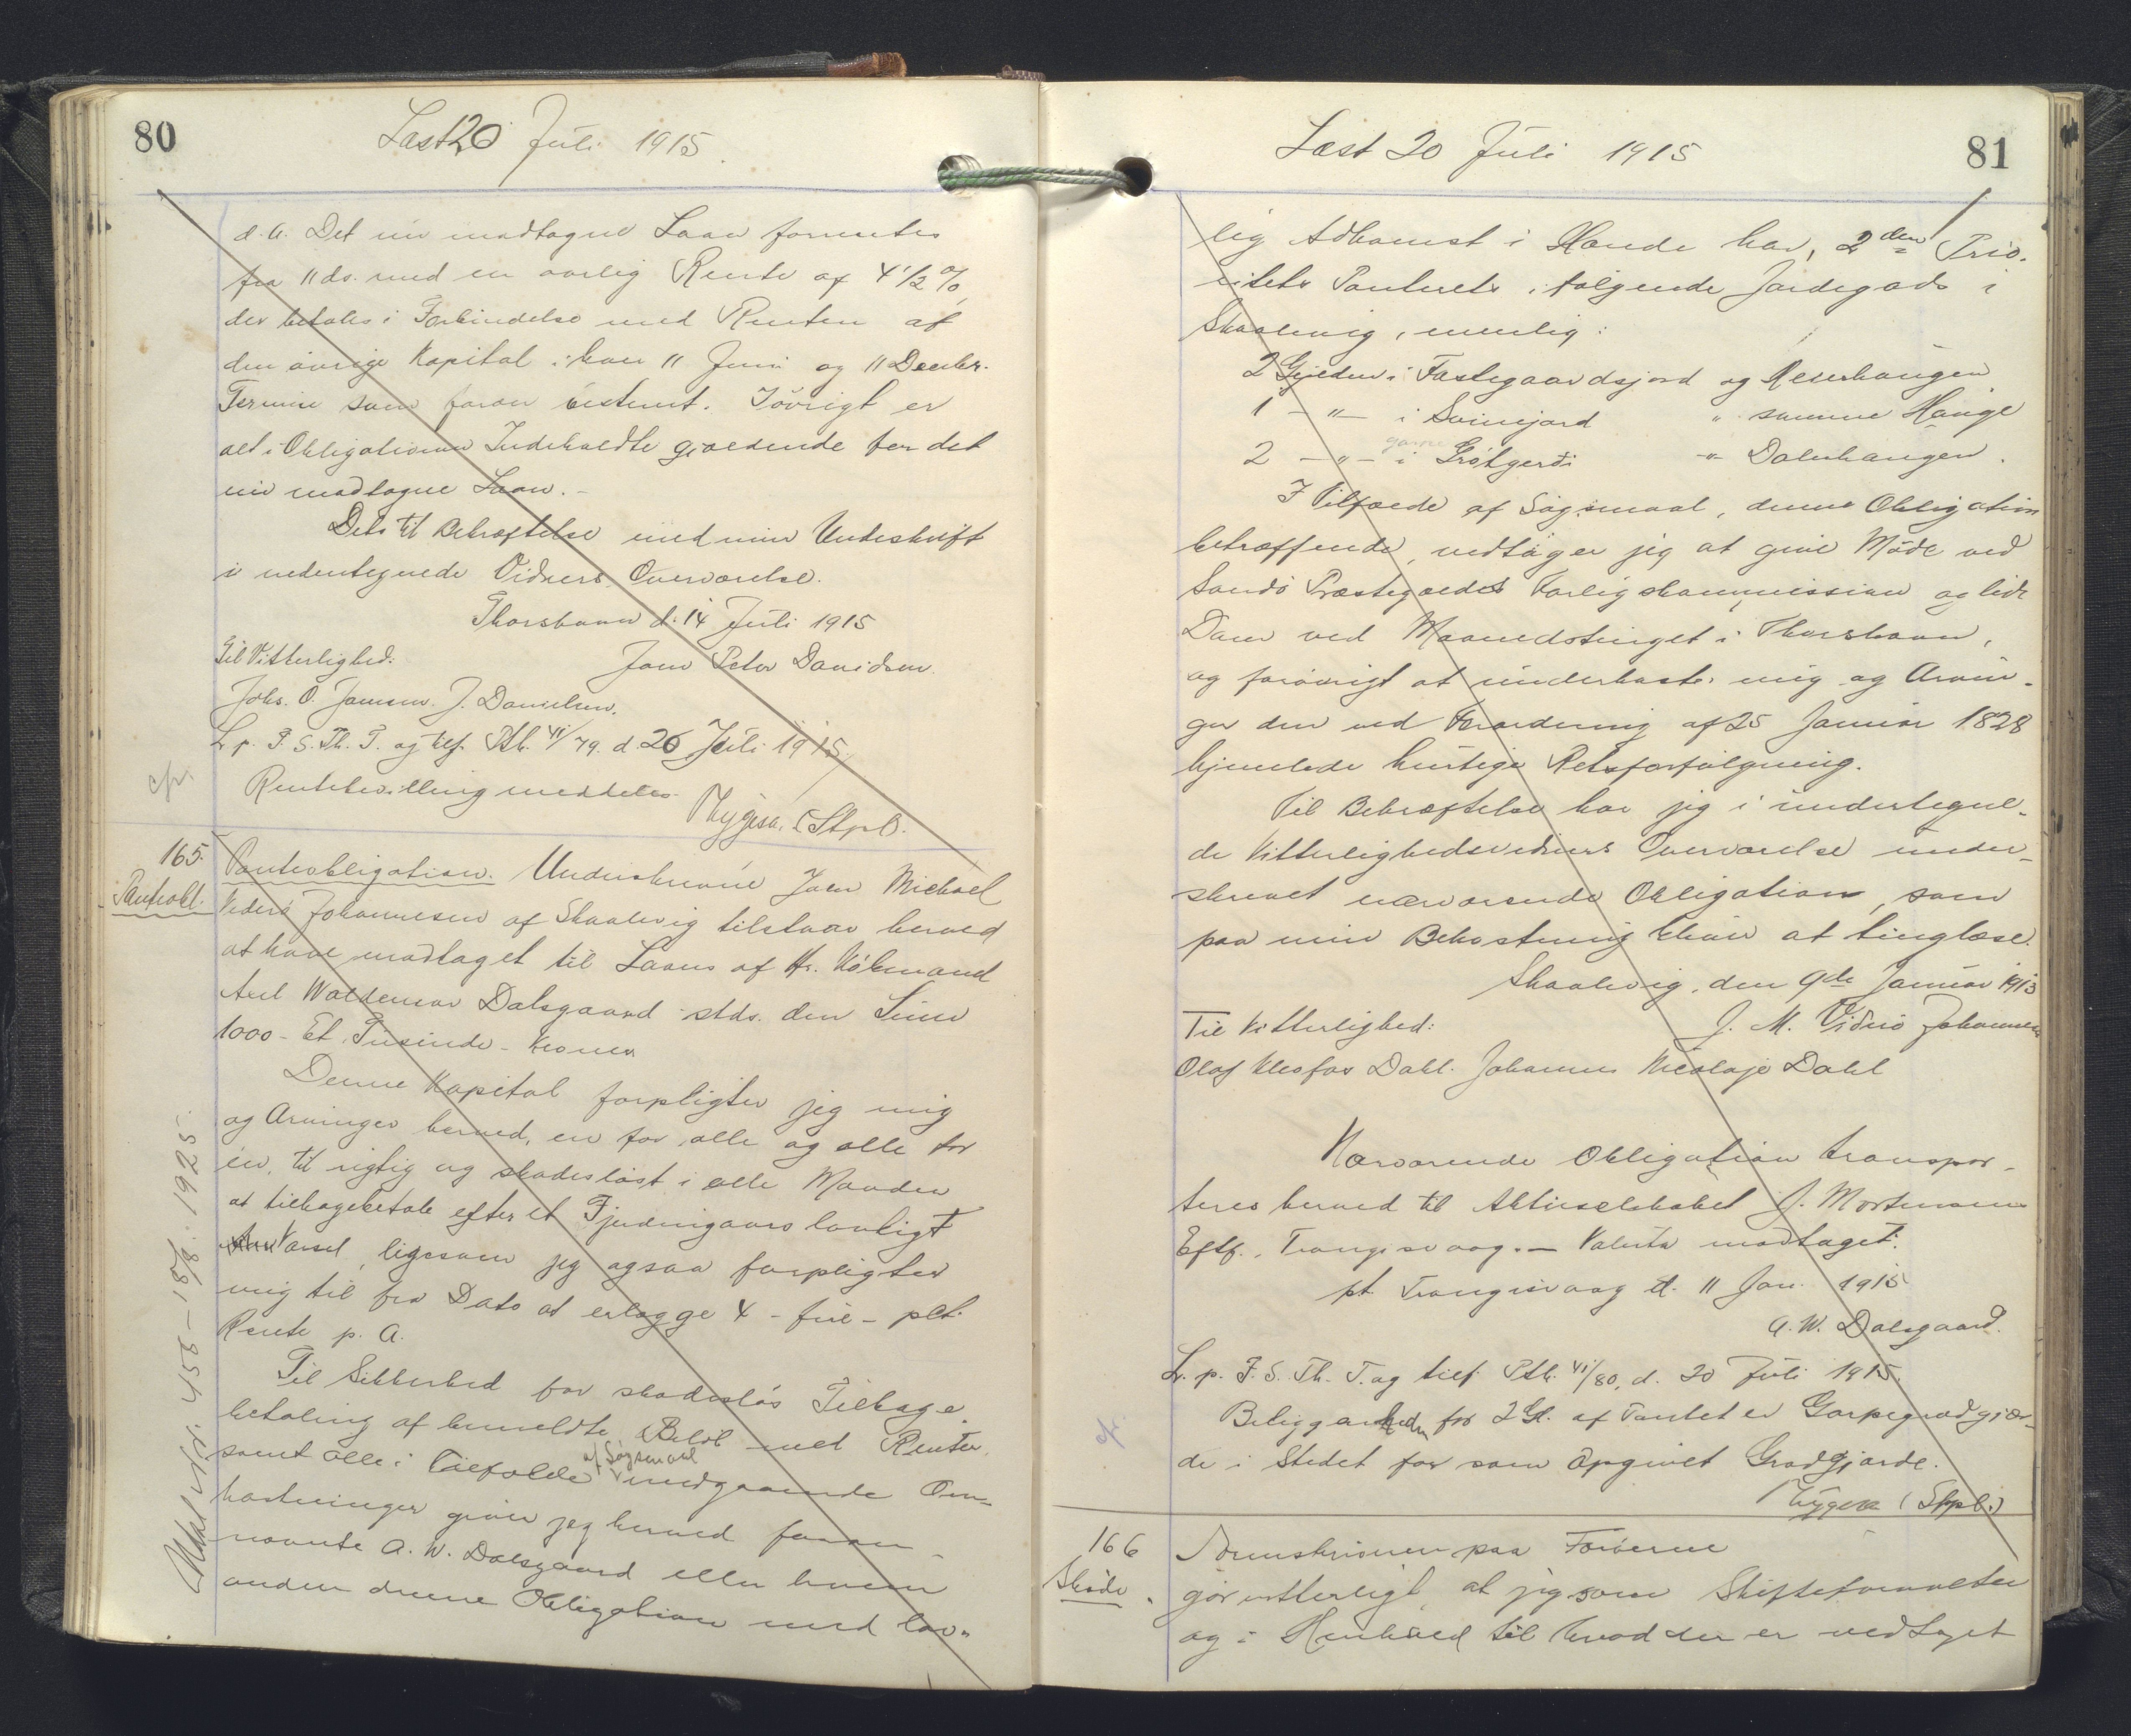 80
Læst 20 Juli 1915.
d. A. Det nu modtagne Laan forrentes
fra 11 ds. med en aarlig Rente af 4 1/2 %,
der betales i Forbindelse med Renten af
den øvrige Kapital i hver 11 Juni og 11 Decbr.
Termin som foran bestemt. Iøvrigt er
alt i Obligationen Indeholdte gjældende for det
nu modtagne Laan. -
Dets til Bekræftelse med min Underskrift
i nedentegnede Vidners Overværelse.
Thorshavn d. 14 Juli 1915
Til Vitterlighed: Joen Peter Davidsen.
Johs. O. Jensen. J. Danielsen.
L. p. F. S. Th. T. og tilf. Ptb. 41/79. d. 20 Juli 1915.
cfr.
Rentebevilling meddeles.
Thygesen (Stpl).
165.
Pantobl.
Panteobligation. Underskrevne Joen Michael
Viderø Johannesen af Skaalevig tilstaar herved
at have modtaget til Laans af Hr. Købmand
Axel Waldemar Dalsgaard stds. den Sum
1000 - Et Tusinde - Kroner
Denne Kapital forpligter jeg mig
og Arvinger herved, en for alle og alle for
én, til rigtig og skadesløst i alle Maader
at tilbagebetale efter et Fjerdingaars lovligt
Varsel, ligesom jeg ogsaa forpligter
mig til fra Dato at erlægge 4 - fire - pct.
Rente p. A.
Til Sikkerhed for skadesløs Tilbage
betaling af bemeldte Beløb med Renter
samt alle i Tilfælde af Søgsmaal medgaaende Om-
kostninger giver jeg herved foran-
nævnte A. W. Dalsgaard eller hvem
anden denne Obligation med lov-
455 - 18/8. 1925.
81
Læst 20 Juli 1915
lig Adkomst i Hænde har, 2den Prio-
ritets Panteret i følgende Jordegods i
Skaalevig, nemlig:
2 Gylden i Fastegaardsjord og Reserhaugen
1 - " - i Svinejord " samme Hauge
2 - " - i Grótgerði " Dalerhaugen.
I Tilfælde af Søgsmaal, denne Obligation
betræffende, vedtager jeg at give Møde ved
Sandø Præstegjældet Forligskommission og lide
Dom ved Maanedstinget i Thorshavn,
og forøvrigt at underkaste mig og Arvin-
ger den ved Forordning af 25 Januar 1828
hjemlede hurtige Retsforfølgning.
Til Bekræftelse har jeg i undertegne-
de Vitterlighedsvidners Overværelse under-
skrevet nærværende Obligation, som
paa min Bekostning bliver at tinglæse.
Skaalevig, den 9de Januar 1913
Til Vitterlighed: J. M. Viderø Johannesen
Olaf Kleofas Dahl. Johannes Nicolaje Dahl
Nærværende Obligation transpor-
teres herved til Aktieselskabet J. Mortensens
Eftf., Trangisvaag. - Valuta modtaget.
pt. Trangisvaag d. 11 Jan. 1915
A. W. Dalsgaard.
L. p. F. S. Th. T. og tilf. Ptb. 41/80, d. 20 Juli 1915.
cfr.
Beliggenheden for 2 Gl. af Pantet er Garpegrodgjær-
de i Stedet for som opgivet Grodgjærde.
Thygesen (Stpl.)
166
Skøde.
Sorenskriveren paa Færøerne
gør vitterligt, at jeg som Skifteforvalter
og i Henhold til hvad der er vedtaget